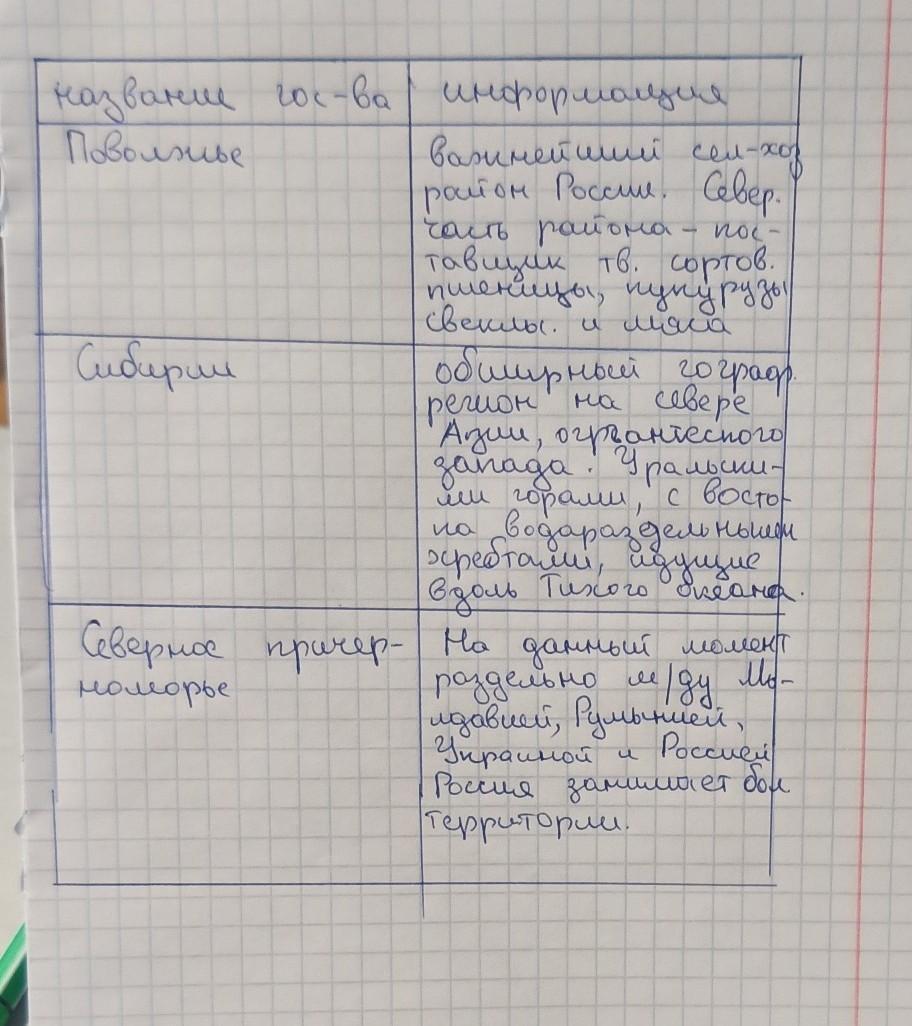 название гос-ва
информация
Поволжье
важнейший сел-хоз
район России. Север.
часть района - пос-
тавщик тв. сортов.
пшеницы, кукурузы
свеклы. и мяса
Сибирии
обширный гограф.
регион на севере
Азии,
запада. Уральски-
ми горами, с восто-
ка водараздельными
хребтами, идущие
вдоль Тихого океана.
Северное причер-
номорье
На данный момент
раздельно м/ду Мо-
лдавией, Румынией,
Украиной и Россией
Россия занимает бол
территории.